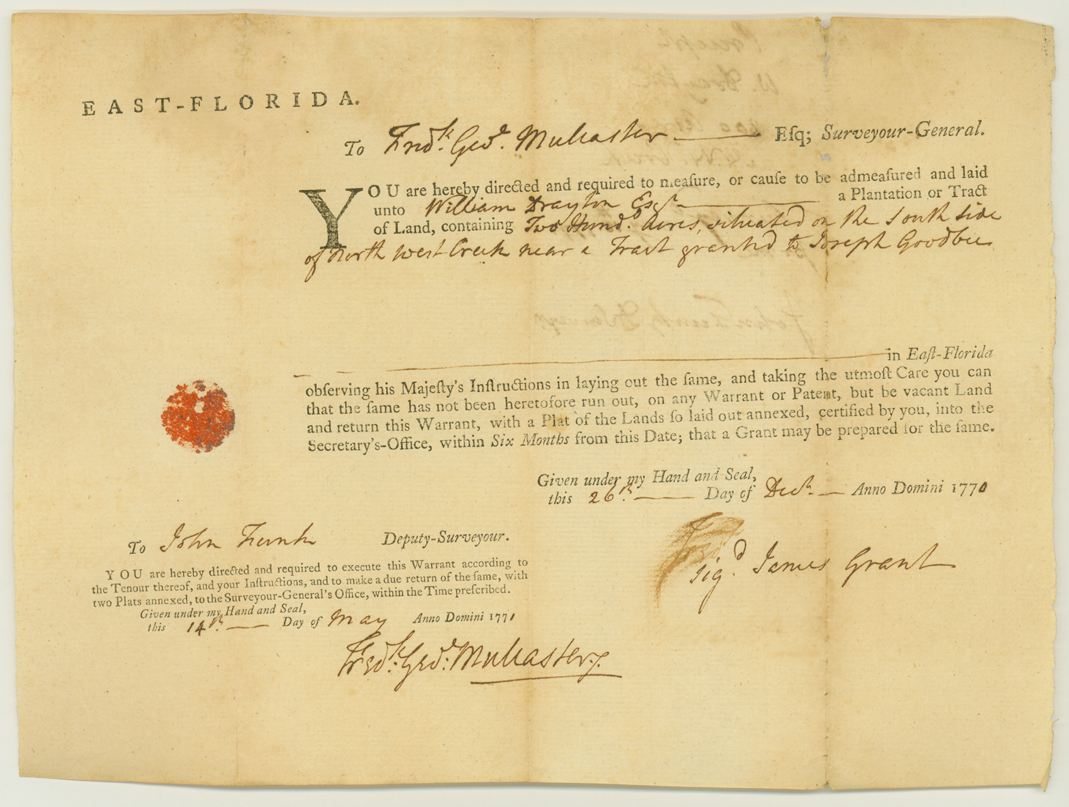 EAST-FLORIDA.
To Fred.k Geo.e Mulcaster Esq; Surveyour-General.
YOU are hereby directed and required to measure, or cause to be admeasured and laid
unto William Drayton Esq.r a Plantation or Tract
of Land, containing Two Hund.d Acres, situated on the South side
of North west Creek near a Tract granted to Joseph Goodbee
in East-Florida
observing his Majesty's Instructions in laying out the same, and taking the utmost Care you can
that the same has not been heretofore run out, on any Warrant or Patent, but be vacant Land
and return this Warrant, with a Plat of the Lands so laid out annexed, certified by you, into the
Secretary's-Office, within Six Months from this Date; that a Grant may be prepared for the same.
Given under my Hand and Seal,
this 26th Day of Dec.r Anno Domini 1770
Sig.d James Grant
To John Funk Deputy-Surveyour.
YOU are hereby directed and required to execute this Warrant according to
the Tenour thereof, and your Instructions, and to make a due return of the same, with
two Plats annexed, to the Surveyour-General's Office, within the Time prescribed.
Given under my Hand and Seal,
this 14th Day of May Anno Domini 1771
Fred.k Geo.e Mulcaster